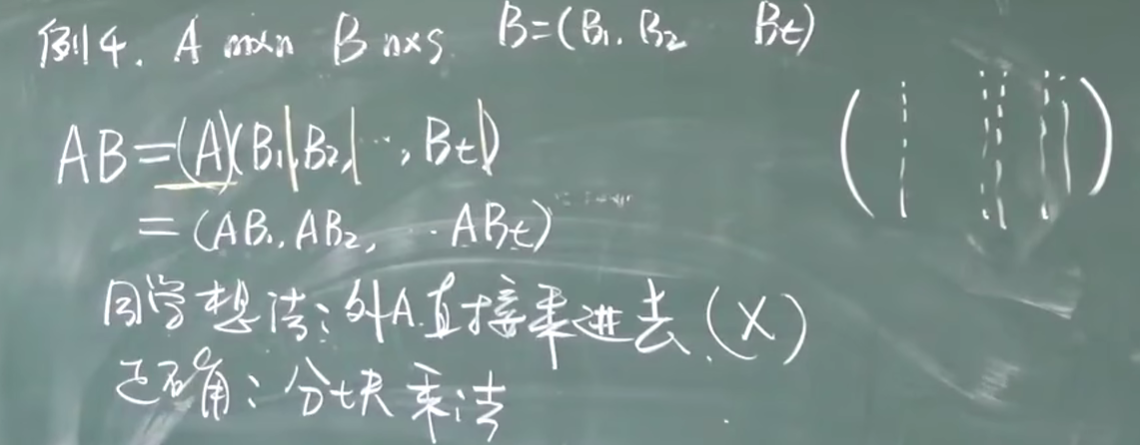 例4. A m×n B n×s B=(B₁. B₂ Bt)
AB=(A)(B₁|B₂,|…,Bt|)
=(AB₁,AB₂, … ABt)
同学想法:外A.直接乘进去.(X)
正确:分块乘法